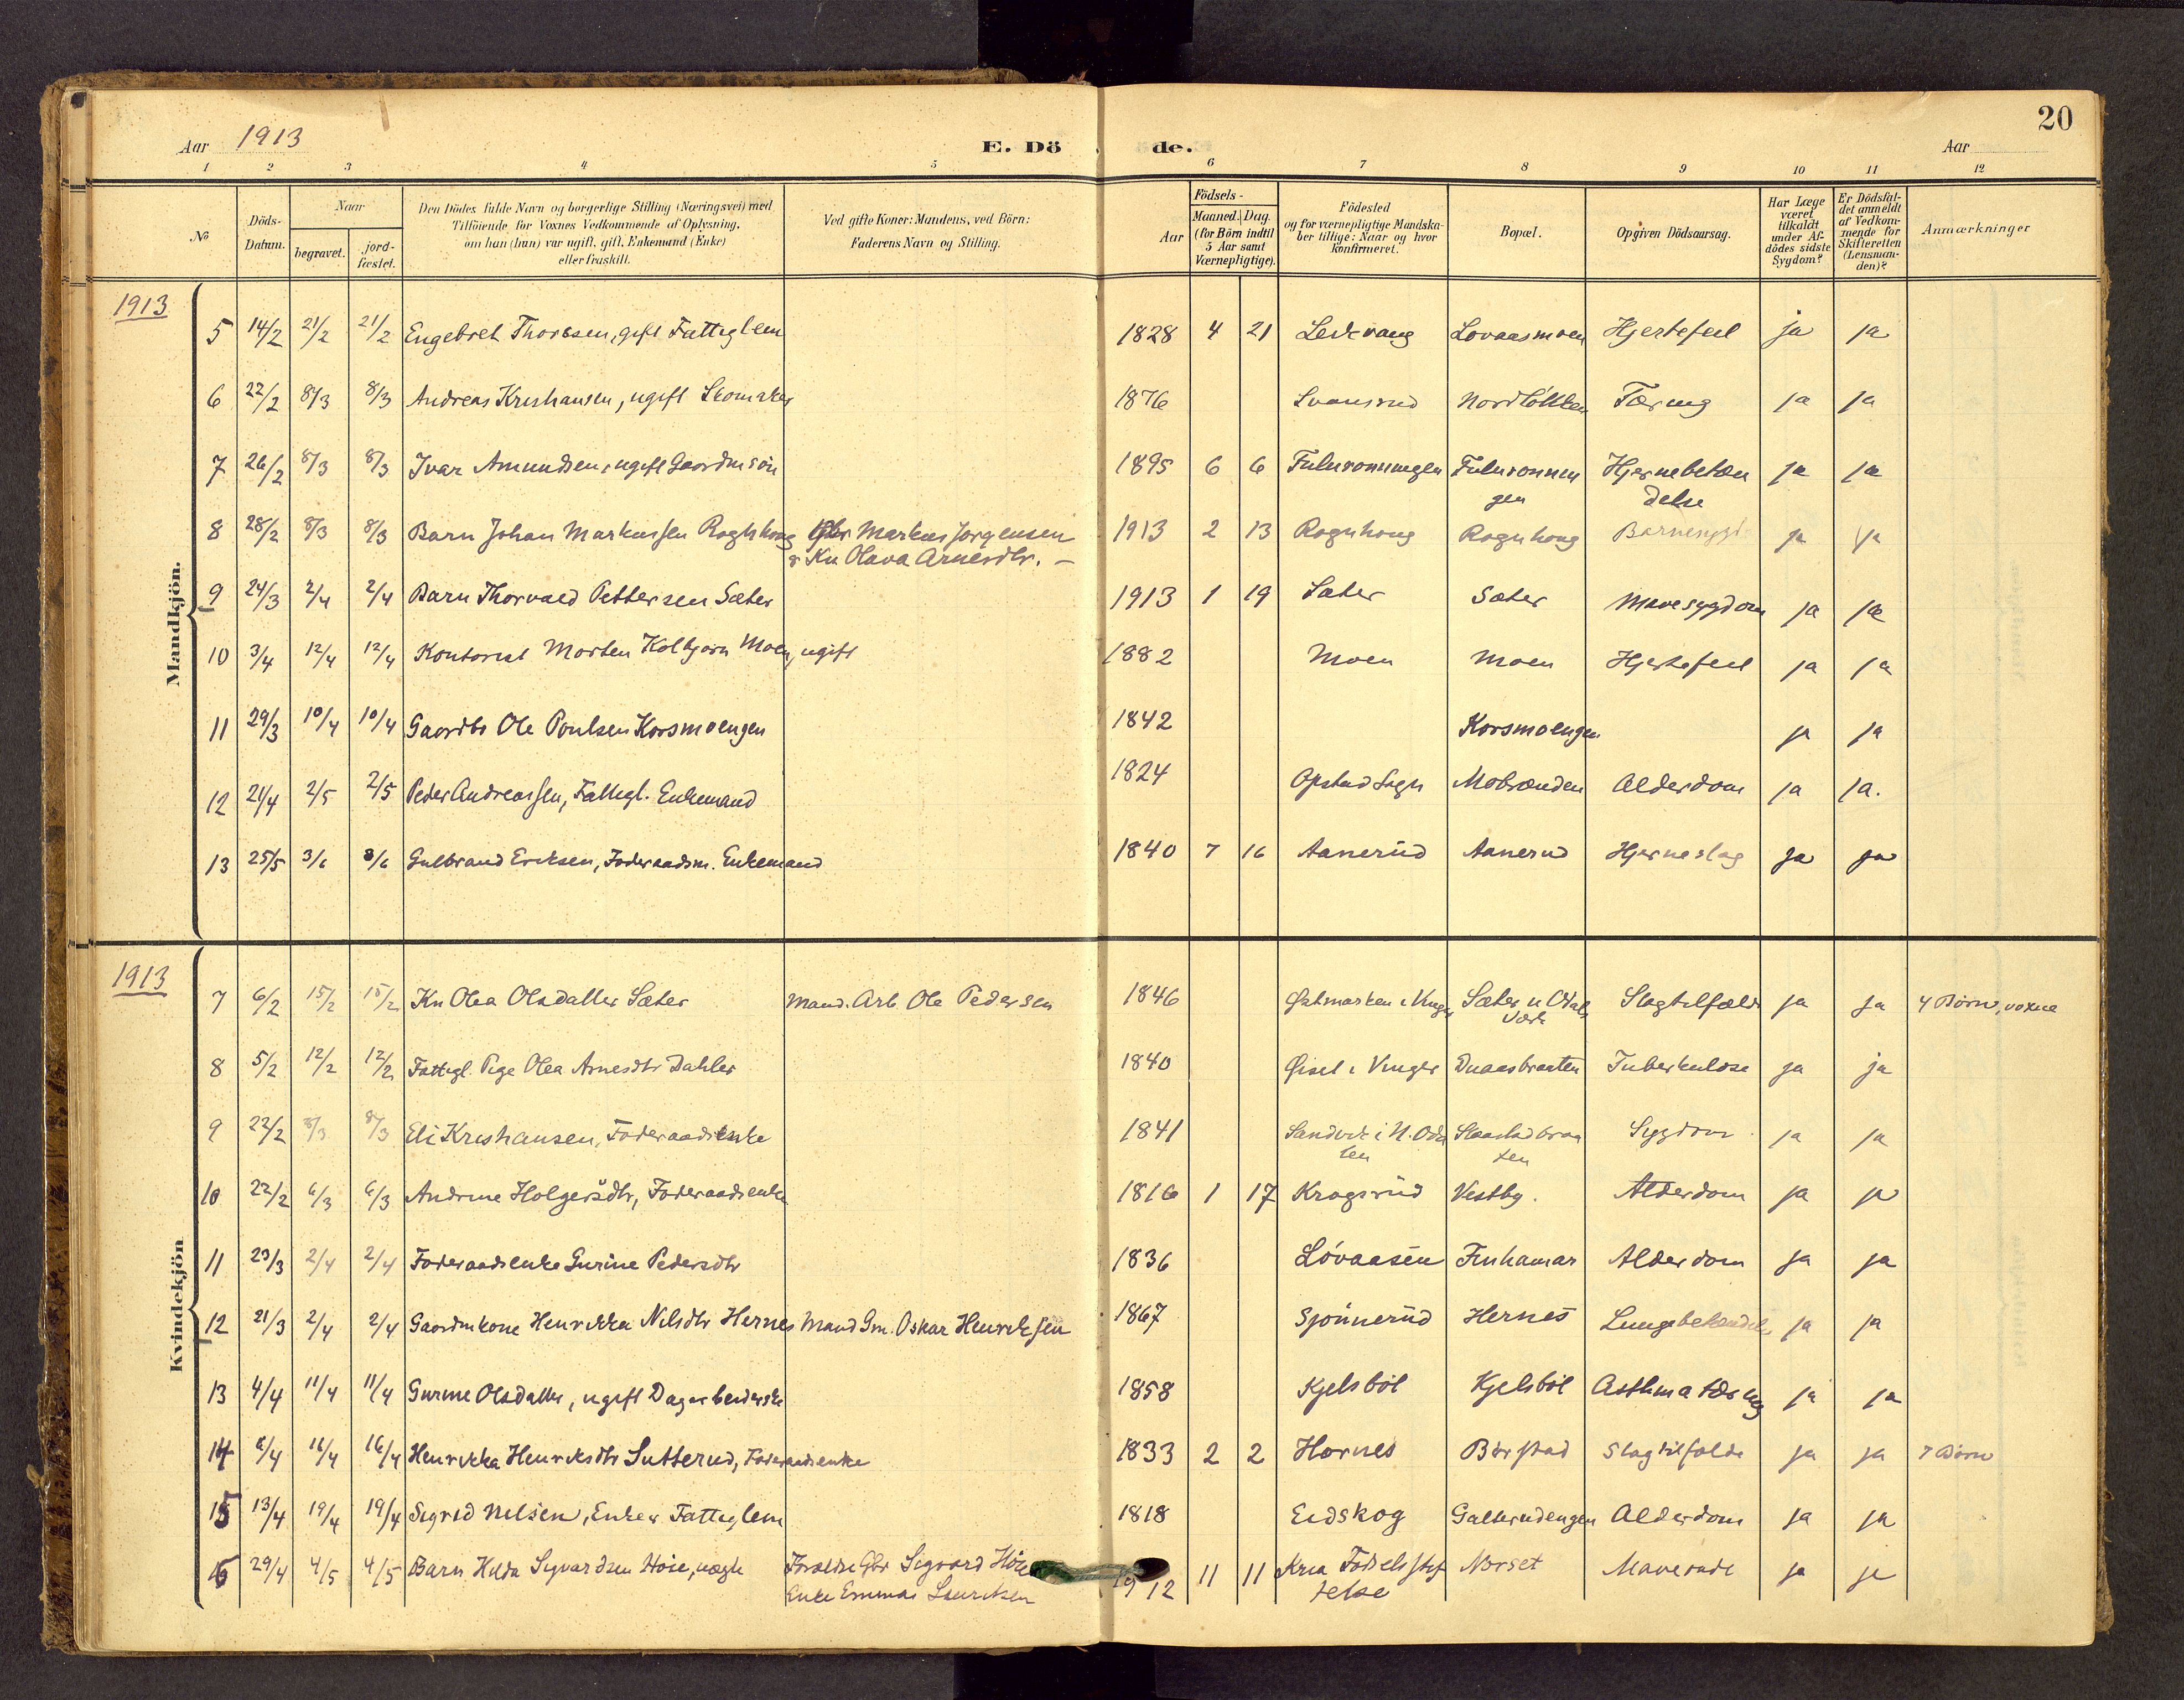 20
Aar 1913
E. Dö
de.
Aar
1 2 3 4 5 6 7 8 9 10 11 12
No
Döds-Datum.
Naar
begravet.
jord-fæstet.
Den Dödes fulde Navn og borgerlige Stilling (Næringsvei) med
Tilföiende for Voxnes Vedkommende af Oplysning,
om han (hun) var ugift, gift, Enkemand (Enke)
eller fraskilt.
Ved gifte Koner: Mandens, ved Börn:
Faderens Navn og Stilling.
Födsels-
Aar
Maaned. Dag.
(for Börn indtil
5 Aar samt
Værnepligtige).
Födested
og for værnepligtige Mandska-
ber tillige: Naar og hvor
konfirmeret.
Bopæl.
Opgiven Dödsaarsag.
Har Læge
været
tilkaldt
under Af-
dödes sidste
Sygdom?
Er Dödsfal-
det anmeldt
af Vedkom-
mende for
Skifteretten
(Lensman-
den)?
Anmærkninger
1913
Mandkjön.
5 14/2 21/2 21/2 Engebret Thoresen, gift Fattiglem 1828 4 21 Lovaasmoen Hjertefeil ja ja
6 22/2 8/3 8/3 Andreas Kristiansen, ugift Skomaker 1876 Svansrud Nordløkken Tæring ja ja
7 26/2 8/3 8/3 Ivar Amundsen, ugift Gaardmsøn 1895 6 6 Fulurønningen Fulurønnin Hjernebetæn ja ja
gen delse
8 28/2 8/3 8/3 Barn Johan Markussen Rognhaug Gbr Markus Jørgensen 1913 2 13 Rognhaug Rognhaug Barnesygd ja ja
& Kn Olava Arnesdtr. –
9 24/3 2/4 2/4 Barn Thorvald Pettersen Sæter 1913 1 19 Sæter Sæter Mavesygdom ja ja
10 3/4 12/4 12/4 Kontorist Morten Kolbjørn Moen, ugift 1882 Moen Moen Hjertefeil ja ja
11 29/3 10/4 10/4 Gaardbr Ole Poulsen Korsmoengen 1842 Korsmoengen ja ja
12 21/4 2/5 2/5 Peder Andreassen, Fattigl. Enkemand 1824 Opstad Sogn Mobrænden Alderdom ja ja.
13 25/5 3/6 3/6 Gulbrand Eriksen, Foderaadsm. Enkemand 1840 7 16 Aanerud Aanerud Hjerneslag ja ja
1913
Kvindekjön
7 6/2 15/2 15/2 Kn Olea Olsdatter Sæter Mand. Arb. Ole Pedersen 1846 Sæter Slagtilfælde ja ja 4 Børn, voxne
8 5/2 12/2 12/2 Fattigl. Pige Olea Arnesdtr Dahler 1840 Øisel i Vinger Tuberkulose ja ja
9 22/2 8/3 8/3 Eli Kristiansen, Foderaadsenke 1841 Sandvik i N. Oda Slaastadbraa Sygdom ja ja
len ten
10 22/2 6/3 6/3 Andrine Holgersdtr, Foderaadsenke 1816 1 17 Krogsrud Vestby. Alderdom ja ja
11 23/3 2/4 2/4 Foderaadsenke Gurine Pedersdtr 1836 Løvaasen Finhamar Alderdom ja ja
12 21/3 2/4 2/4 Gaardmkone Henrikka Nilsdtr Hernes Mand Gm. Oskar Henriksen 1867 Sjønnerud Hernes ja ja
13 4/4 11/4 11/4 Gurine Olsdatter, ugift Dagarbeiderske 1858 Kjelsbøl Kjelsbøl Asthma tæring ja ja
14 8/4 16/4 16/4 Henrikka Henriksdtr Sutterud, Foderaadsenke 1833 2 2 Hornes Børstad Slagtilfælde ja ja 7 Børn
15 13/4 19/4 19/4 Sigrid Nilsen, Enke Fattiglem 1818 Eidskog Galterudengen Alderdom ja ja
16 29/4 4/5 4/5 Barn Hilda Sigvardsen Hoie, uægte Forældre Gbr Sigvard Høie 1912 11 11 Kria Fødselsstif Norset ja ja
Enke Emma Lauritsen telse